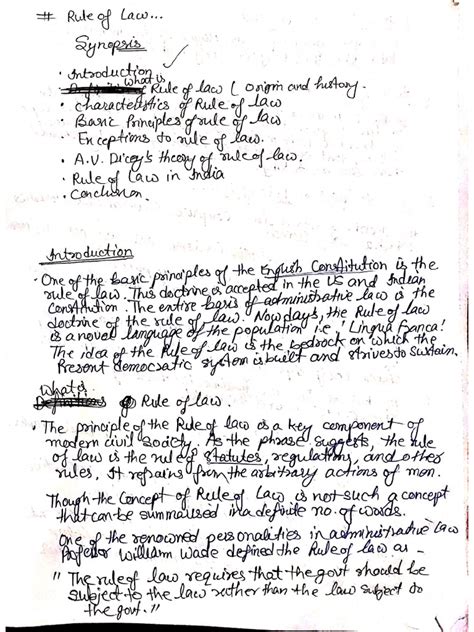 # Rule of Law...
Synopsis
• Introduction
What is Rule of law ( Origin and history.
• characteristics of Rule of law
• Basic Principles of rule of law.
• Exceptions to rule of law.
• A.V. Dicey's theory of rule of law.
• Rule of Law in India
• Conclusion.
Introduction
• One of the basic principles of the English Constitution is the
rule of law. This doctrine is accepted in the US and Indian
Constitution. The entire basis of administrative law is the
doctrine of the rule of law. Nowdays, the Rule of law
is a novel language of the population i.e., 'Lingua Franca!
The idea of the Rule of law is the bedrock on which the
Present democratic system is built and strives to sustain.
What is
Rule of law.
• The principle of the Rule of law is a key component of
modern civil society. As the phrase suggests, the rule
of law is the rule of statutes, regulations, and other
rules. It refrains from the arbitrary actions of men.
Though the Concept of Rule of Law is not such a concept
that can be summarised in a definite no. of words.
One of the renowned personalities in administrative Law
Professor William Wade defined the Rule of law as -
" The rule of law requires that the govt should be
subject to the law rather than the law subject to
the govt. "